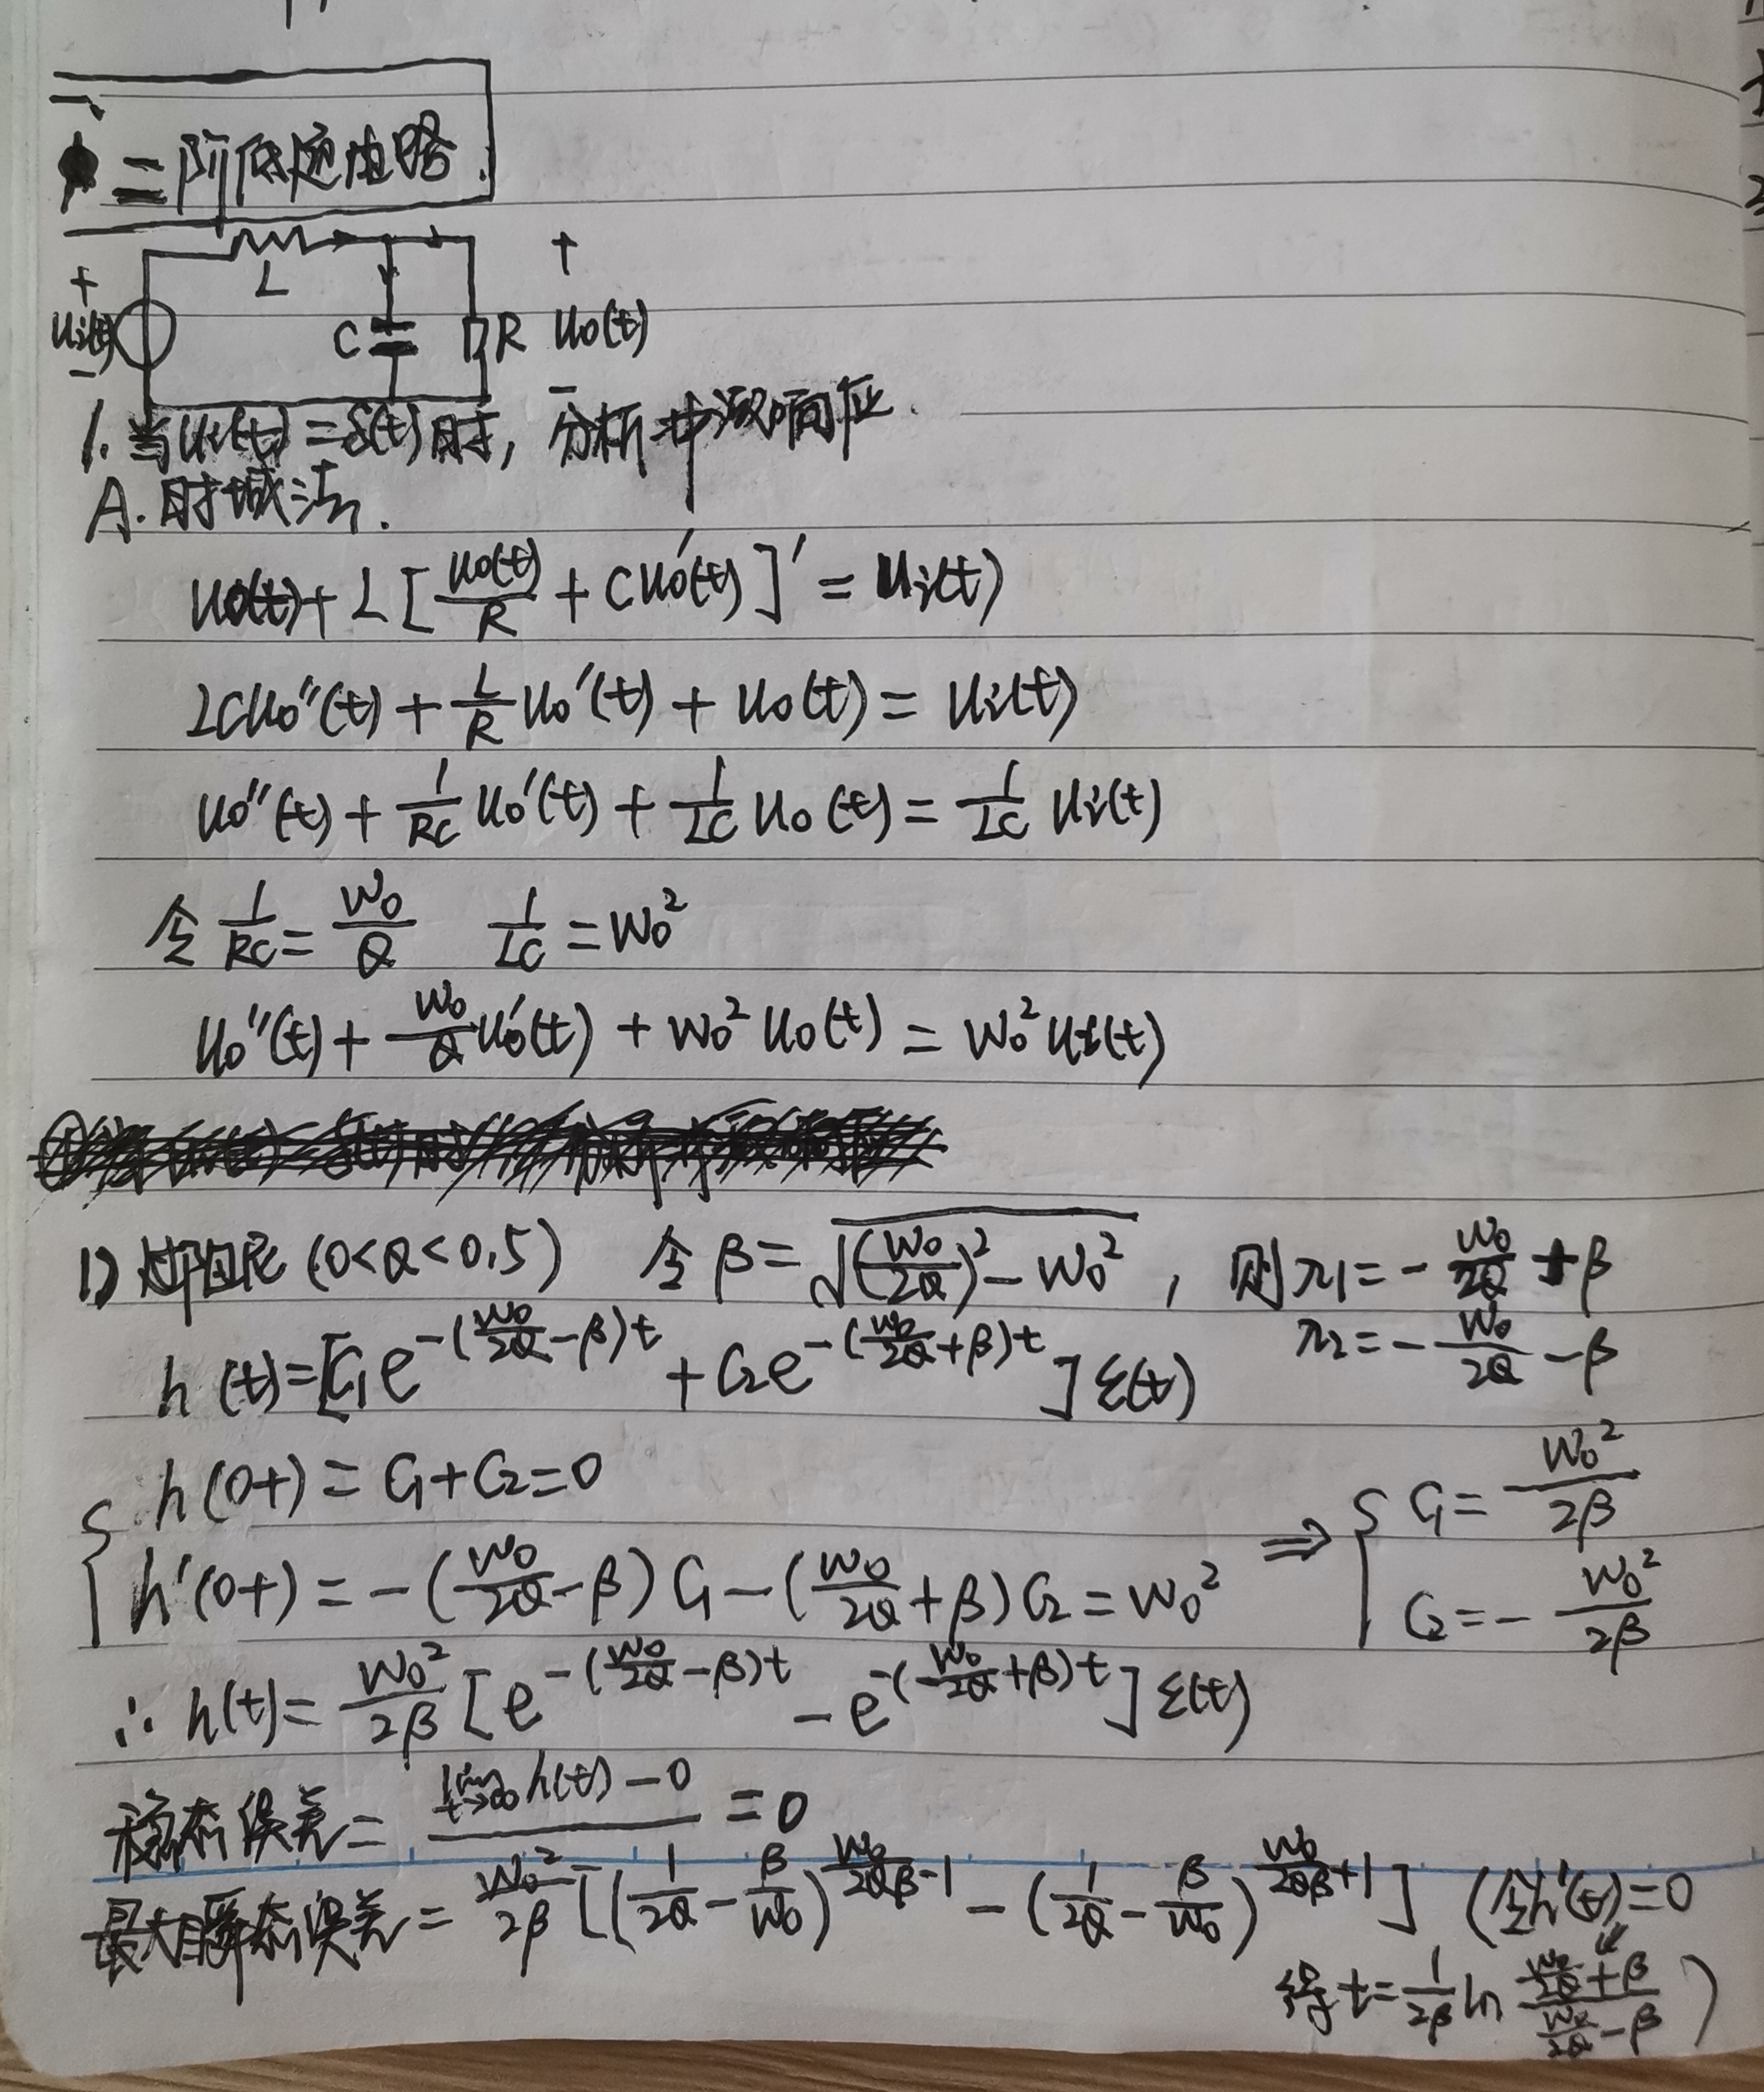 一、
二阶低通电路.
+ L +
ui(t) C R uo(t)
- -
1. 当ui(t)=δ(t)时, 分析冲激响应.
A. 时域法.
uo(t)+L[uo(t)/R + Cuo'(t)]' = ui(t)
LCuo''(t) + L/R uo'(t) + uo(t) = ui(t)
uo''(t) + 1/RC uo'(t) + 1/LC uo(t) = 1/LC ui(t)
令 1/RC = W0/Q 1/LC = W0²
uo''(t) + W0/Q uo'(t) + W0² uo(t) = W0² ui(t)
1) 过阻尼 (0<Q<0.5) 令 β=√((W0/2Q)² - W0²), 则 λ1= - W0/2Q + β
λ2= - W0/2Q - β
h(t)=[C1e^{-(W0/2Q - β)t} + C2e^{-(W0/2Q + β)t}]ε(t)
{ h(0+) = C1+C2=0
h'(0+) = -(W0/2Q - β)C1 - (W0/2Q + β)C2 = W0² ⇒ { C1= W0²/2β
C2= - W0²/2β
∴ h(t)= W0²/2β [e^{-(W0/2Q - β)t} - e^{-(W0/2Q + β)t}]ε(t)
稳态误差= lim t→∞ h(t) - 0 = 0
最大瞬态误差= W0²/2β [(1/2Q - β/W0)^{W0/2Qβ - 1} - (1/2Q - β/W0)^{W0/2Qβ + 1}] (令h'(t)=0
得 t= 1/2β ln (W0/2Q + β)/(W0/2Q - β) )